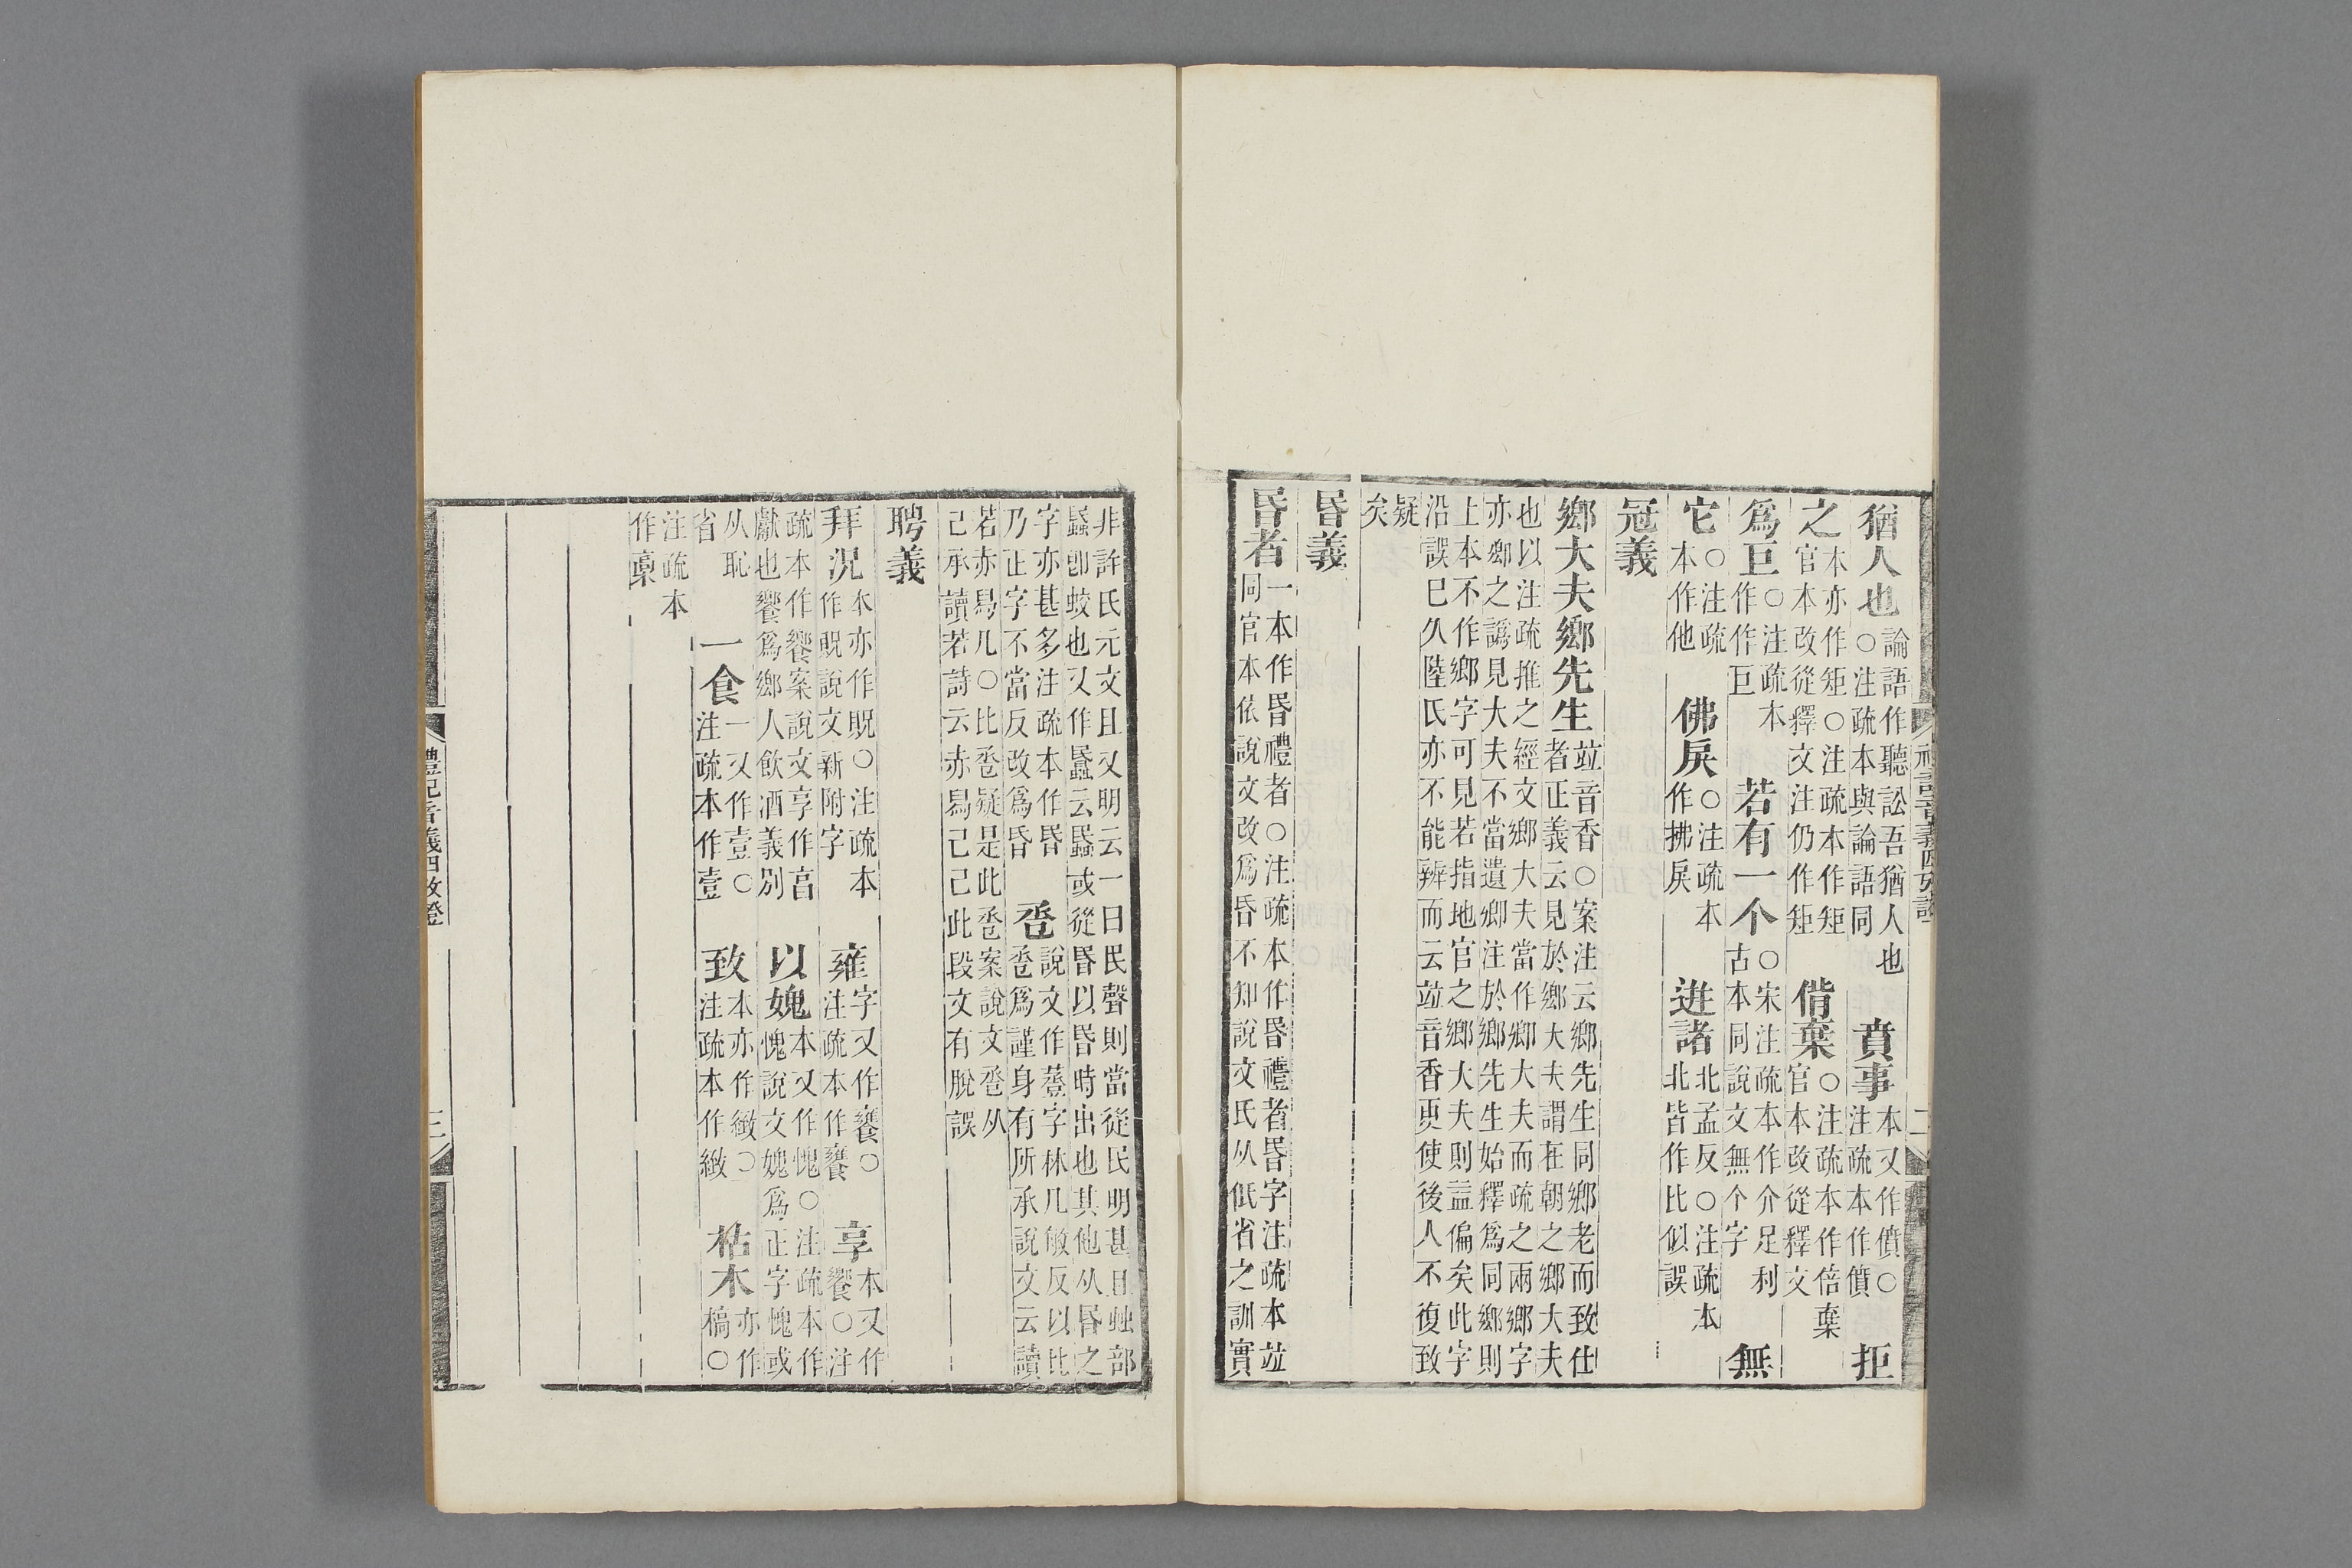 猶人也論語作聽訟吾猶人也○注疏本與論語同 賁事本又作僨○注疏本作僨 拒
之本亦作矩○注疏本作矩官本改從釋文注仍作矩 偝棄○注疏本作倍棄官本改從釋文
爲巨○注疏本作作巨 若有一个○宋注疏本作介足利古本同說文無个字 無
它○注疏本作他 佛戾○注疏本作拂戾 迸諸北孟反○注疏本北皆作比似誤
冠義
鄉大夫鄉先生竝音香○案注云鄉先生同鄉老而致仕者正義云見於鄉大夫謂在朝之鄉大夫
也以注疏推之經文鄉大夫當作鄉大夫而疏之兩鄉字亦鄉之譌見大夫不當遺卿注於鄉先生始釋爲同鄉則
上本不作鄉字可見若指地官之鄉大夫則益偏矣此字沿誤已久陸氏亦不能辨而云竝音香更使後人不復致
疑矣
昏義
昏者一本作昬禮者○注疏本作昏禮者昬字注疏本竝同官本依說文改爲昏不知說文氏从低省之訓實
非許氏元文且又明云一曰民聲則當從民明甚且䖵部蟁卽蚊也又作蟁云蟁或從昬以昬時出也其他从昬之
字亦甚多注疏本作昏乃正字不當反改爲昏 卺說文作䔖字林几敏反以此卺爲謹身有所承說文云讀
若赤舄几○比卺疑是此卺案說文卺从己承讀若詩云赤舄己己此段文有脫誤
聘義
拜況本亦作貺○注疏本作貺說文新附字 雍字又作饔○注疏本作饔 享本又作饗○注
疏本作饗案說文享作亯獻也饗爲鄉人飲酒義別 以媿本又作愧○注疏本作愧說文媿爲正字愧或
从恥省 一食一又作壹○注疏本作壹 致本亦作緻○注疏本作緻 枯木亦作槁○
注疏本作稾
禮記音義四攷證
三